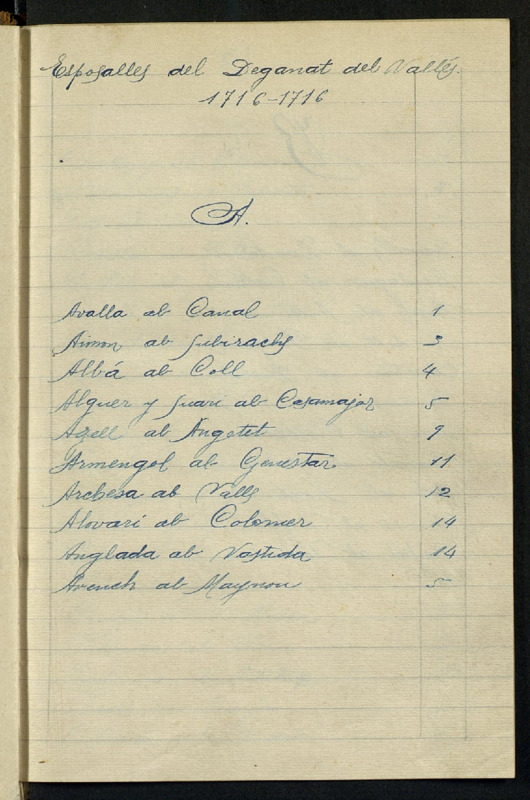 Esposalles del Deganat del Vallés.
1716-1716
A.
Avalla ab Canal 1
Aimon ab Subirachs 3
Albá ab Coll 4
Alguer y Suari ab Casamajor 5
Agell ab Angetet 9
Armengol ab Genestar 11
Archesa ab Valls 12
Alovari ab Colomer 14
Anglada ab Vastida 14
Arench ab Maynou 5